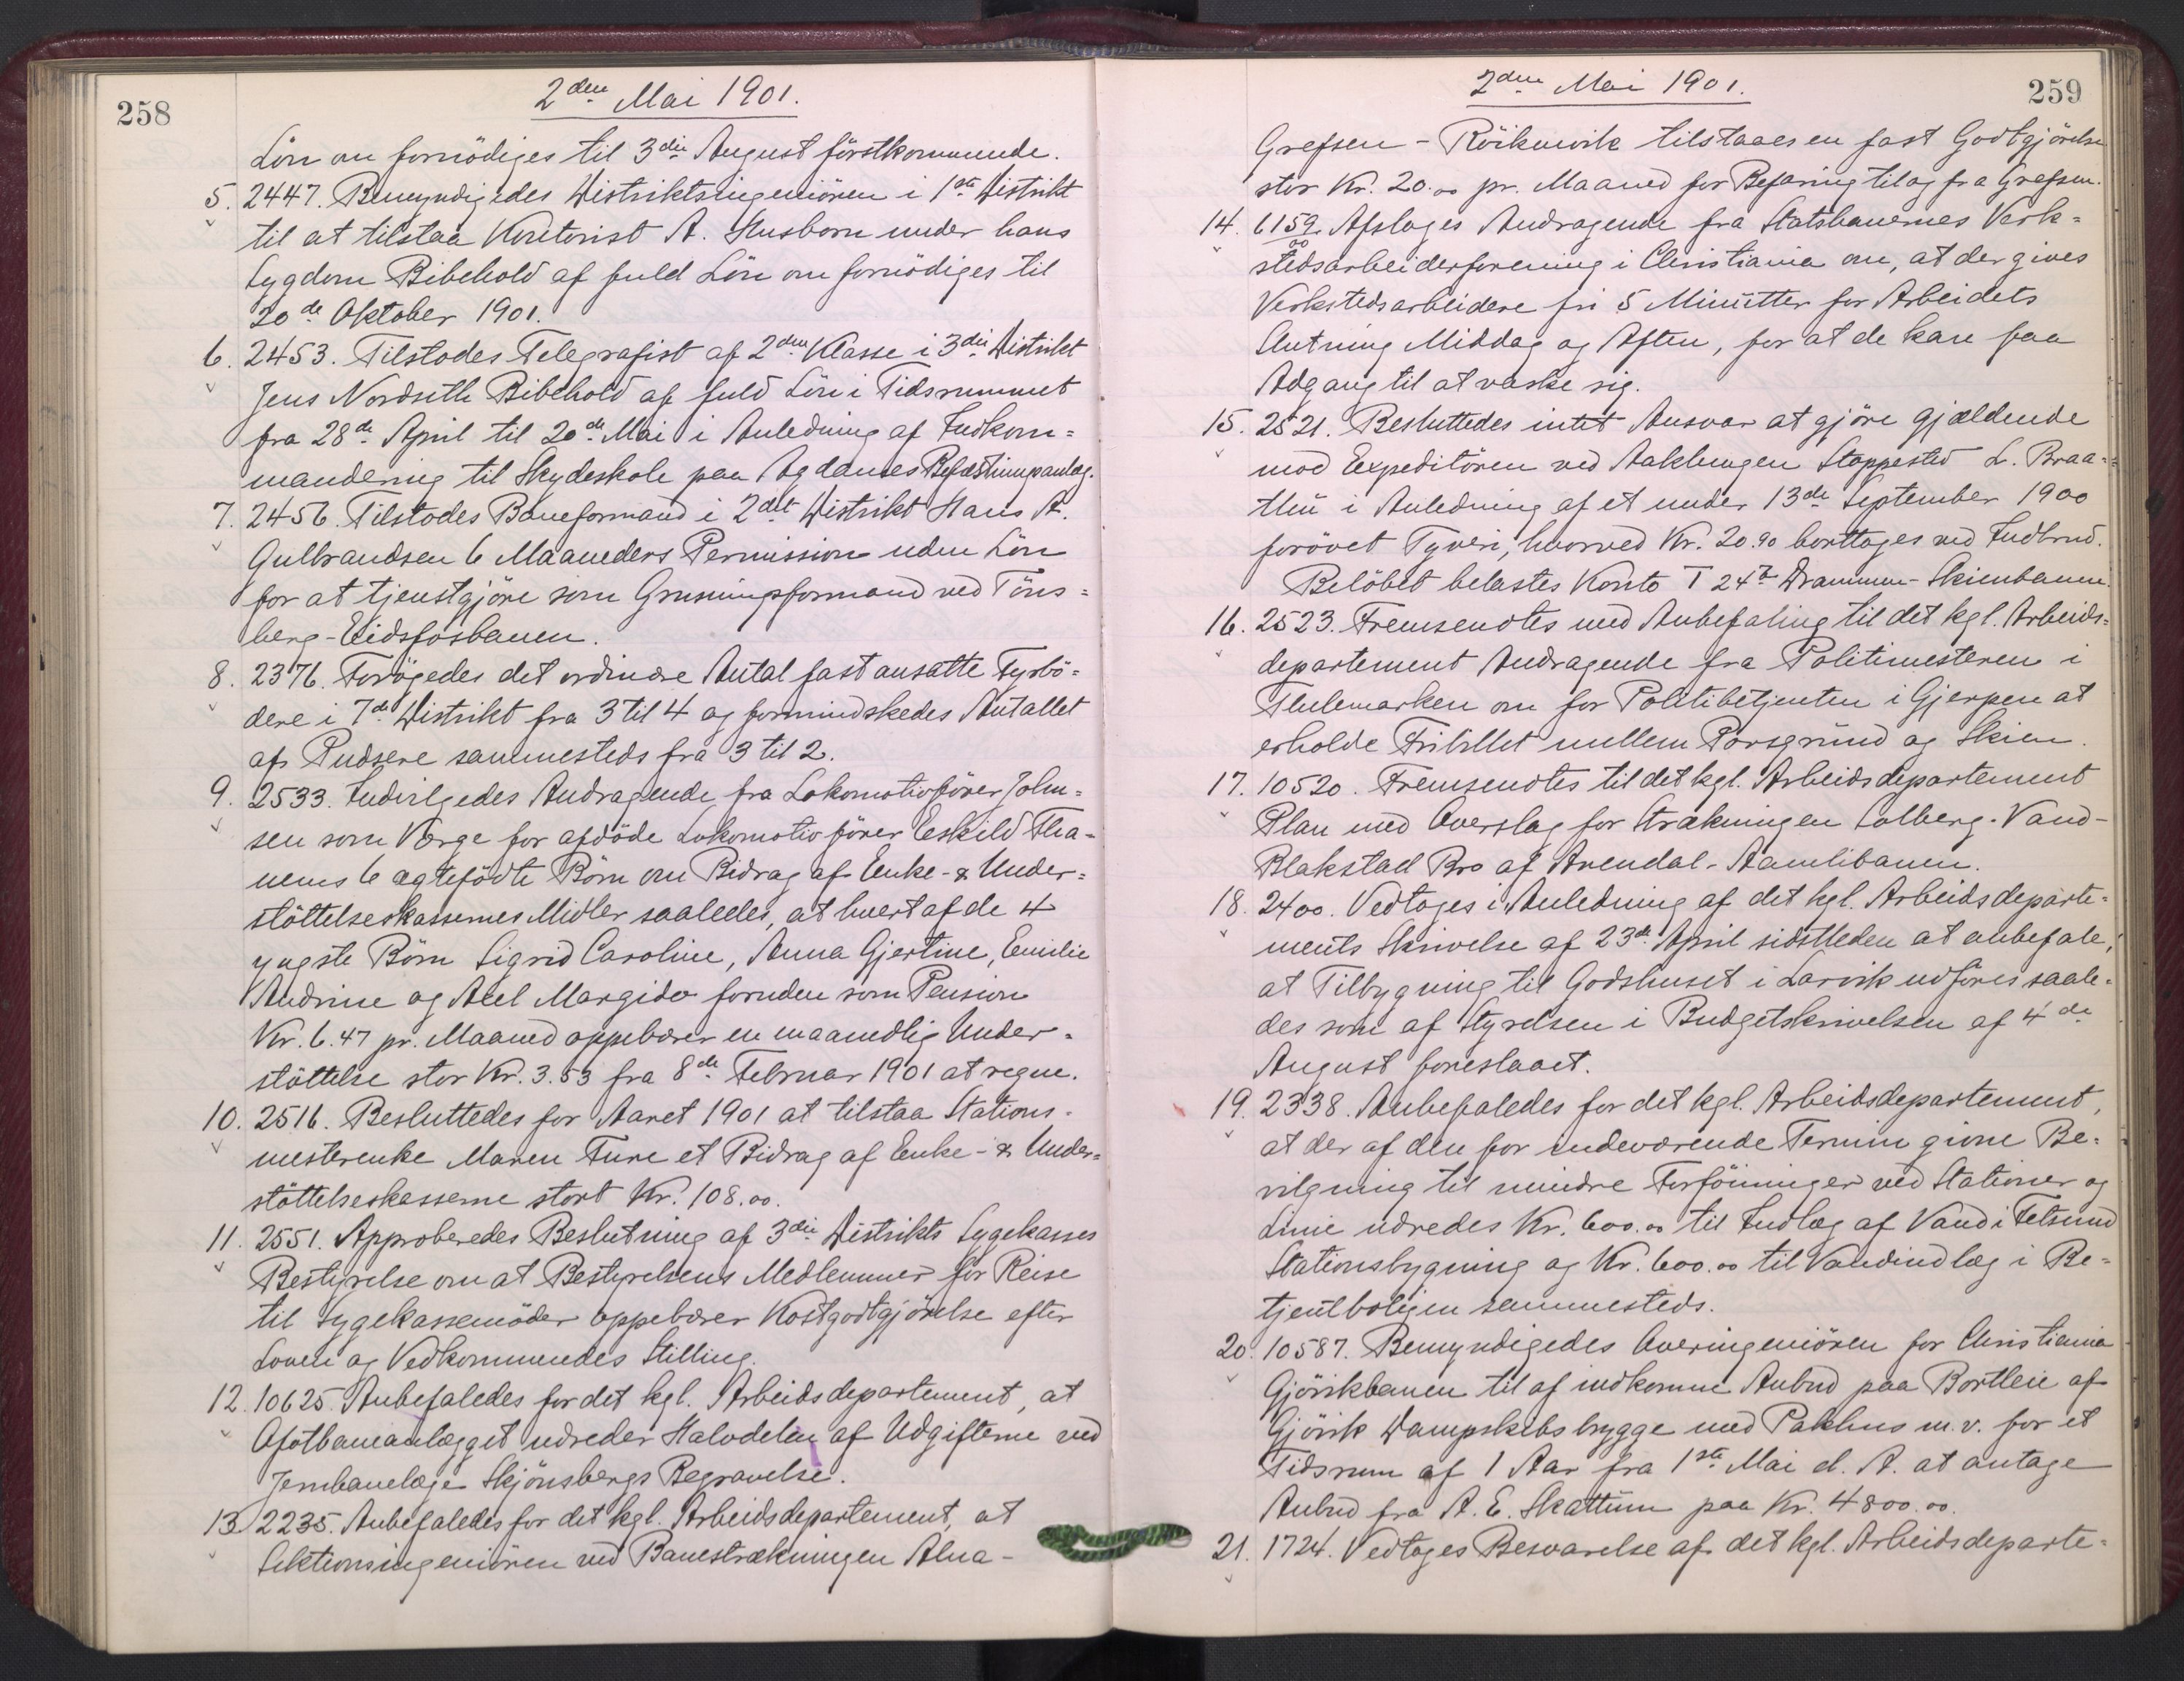 258
2den Mai 1901.
Lön om fornödiges til 3die August förstkommende.
5. 2447. Bemyndigedes Distriktsingeniören i 1ste Distrikt
til at tilstaa Kontorist A. Husborn under hans
Sygdom Bibehold af fuld Lön om fornödiges til
20de Oktober 1901.
6. 2453. Tilstodes Telegrafist af 2den Klasse i 3die Distrikt
Jens Nordseth Bibehold af fuld Lön i Tidsrummet
fra 28de April til 20de Mai i Anledning af Indkom=
mandering til Skydeskole paa Agdanes Befæstningsanlæg.
7. 2456. Tilstodes Baneformand i 2det Distrikt Hans A.
Gulbrandsen 6 Maaneders Permission uden Lön
for at tjenstgjöre som Grusningsformand ved Töns=
berg-Eidsfosbanen.
8. 2376. Forögedes det ordinære Antal fast ansatte Fyrbö=
dere i 7de Distrikt fra 3 til 4 og formindskedes Antallet
af Pudsere sammesteds fra 3 til 2.
9. 2533. Indvilgedes Andragende fra Lokomotivförer John=
sen som Værge for afdöde Lokomotivförer Eskild Tha=
nems 6 ægtefödte Börn om Bidrag af Enke- & Under=
stöttelseskassernes Midler saaledes, at hvert af de 4
yngste Börn Sigrid Caroline, Anna Gjertine, Emilie
Andrine og Axel Margido foruden som Pension
Kr. 6.47 pr. Maaned oppebærer en maanedlig Under=
stöttelse stor Kr. 3.53 fra 8de Februar 1901 at regne.
10. 2516. Besluttedes for Aaret 1901 at tilstaa Stations=
mesterenke Maren Ture et Bidrag af Enke- & Under=
stöttelseskasserne stort Kr. 108.00.
11. 2551. Approberedes Beslutning af 3die Distrikts Sygekasses
Bestyrelse om at Bestyrelsens Medlemmer for Reise
til Sygekassemöder oppebærer Kostgodtgjörelse efter
Loven og Vedkommendes Stilling.
12. 10625. Anbefaledes for det kgl. Arbeidsdepartement, at
Ofotbaneanlægget udreder Halvdelen af Udgifterne ved
Jernbanelæge Skjönsbergs Begravelse.
13. 2235. Anbefaledes for det kgl. Arbeidsdepartement, at
Sektionsingeniören ved Banestrækningen Alna-
259
2den Mai 1901.
Grefsen - Röikenvik tilstaaes en fast Godtgjörelse
stor Kr. 20.00 pr. Maaned for Befaring til og fra Grefsen.
14. 6159/00 Afsloges Andragende fra Statsbanernes Verk=
stedsarbeiderforening i Christiania om, at der gives
Verkstedsarbeidere fri 5 Minutter for Arbeidets
Slutning Middag og Aften, for at de kan faa
Adgang til at vaske sig.
15. 2521. Besluttedes intet Ansvar at gjöre gjældende
mod Expeditören ved Aaklungen Stoppested L. Braa=
then i Anledning af et under 13de September 1900
forövet Tyveri, hvorved Kr. 20.90 borttoges ved Indbrud.
Belöbet belastes Konto T 24b Drammen-Skienbanen.
16. 2523. Fremsendtes med Anbefaling til det kgl. Arbeids=
departement Andragende fra Politimesteren i
Thelemarken om for Politibetjenten i Gjerpen at
erholde Fribillet mellem Porsgrund og Skien.
17. 10520. Fremsendtes til det kgl. Arbeidsdepartement
Plan med Overslag for Strækningen Solberg Vand-
Blakstad Bro af Arendal-Aamlibanen.
18. 2400. Vedtoges i Anledning af det kgl. Arbeidsdeparte=
ments Skrivelse af 23de April sidstleden at anbefale,
at Tilbygning til Godshuset i Larvik udföres saale=
des som af Styrelsen i Budgetskrivelsen af 4de
August foreslaaet.
19. 2338. Anbefaledes for det kgl. Arbeidsdepartement,
at der af den for indeværende Termin givne Be=
vilgning til mindre Forföininger ved Stationer og
Linie udredes Kr. 600.00 til Indlæg af Vand i Fetsund
Stationsbygning og Kr. 600.00 til Vandindlæg i Be=
tjentboligen sammesteds.
20. 10587. Bemyndigedes Overingeniören for Christiania
Gjövikbanen til af indkomne Anbud paa Bortleie af
Gjövik Dampskibsbrygge med Pakhus m.v. for et
Tidsrum af 1 Aar fra 1ste Mai d. A. at antage
Anbud fra A. E. Skattum paa Kr. 4800.00.
21. 1724. Vedtoges Besvarelse af det kgl. Arbeidsdeparte=